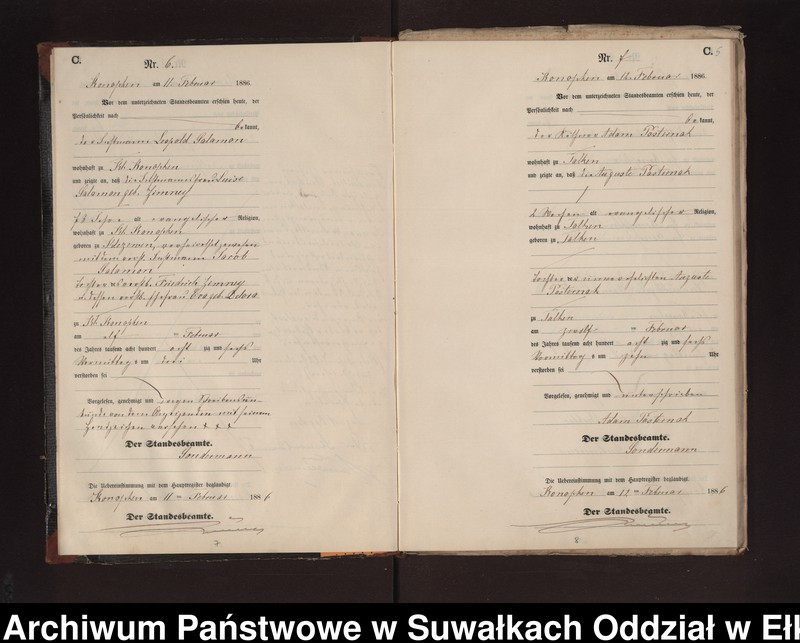 C.
Nr. 6.
Konopken am 11. Februar 1886.
Vor dem unterzeichneten Standesbeamten erschien heute, der
Persönlichkeit nach
be kannt,
der Instmann Leopold Salamon
wohnhaft zu Kl. Konopken
und zeigte an, daß die Instmannsfrau Louise
Salamon geb.
alt evangelischer Religion,
wohnhaft zu Kl. Konopken
geboren zu verheirathet gewesen
mit dem verst. Instmann Jacob
Salamon
Tochter des verstb. Friedrich
u. dessen verstb. Ehefrau geb.
zu Kl. Konopken
am elf ten Februar
des Jahres tausend acht hundert acht zig und sechs
Vormittag s um drei Uhr
verstorben sei
Vorgelesen, genehmigt und wegen Schreibensun
kunde von dem Anzeigenden mit seinem
Handzeichen versehen + + +
Der Standesbeamte.
Sondermann
Die Uebereinstimmung mit dem Hauptregister beglaubigt.
Konopken am 11 ten Februar 1886
Der Standesbeamte.
7
C.
Nr. 7
Konopken am 12. Februar 1886.
Vor dem unterzeichneten Standesbeamten erschien heute, der
Persönlichkeit nach
be kannt,
der Adam Posternak
wohnhaft zu Talken
und zeigte an, daß die Auguste Posternak
2 Wochen alt evangelischer Religion,
wohnhaft zu Talken
geboren zu Talken
Tochter der unverehelichten Auguste
Posternak
zu Talken
am zwölf ten Februar
des Jahres tausend acht hundert acht zig und sechs
Vormittag s um zehn Uhr
verstorben sei
Vorgelesen, genehmigt und unterschrieben
Adam Posternak
Der Standesbeamte.
Sondermann
Die Uebereinstimmung mit dem Hauptregister beglaubigt.
Konopken am 12 ten Februar 1886
Der Standesbeamte.
8
Archiwum Państwowe w Suwałkach Oddział w Ełk